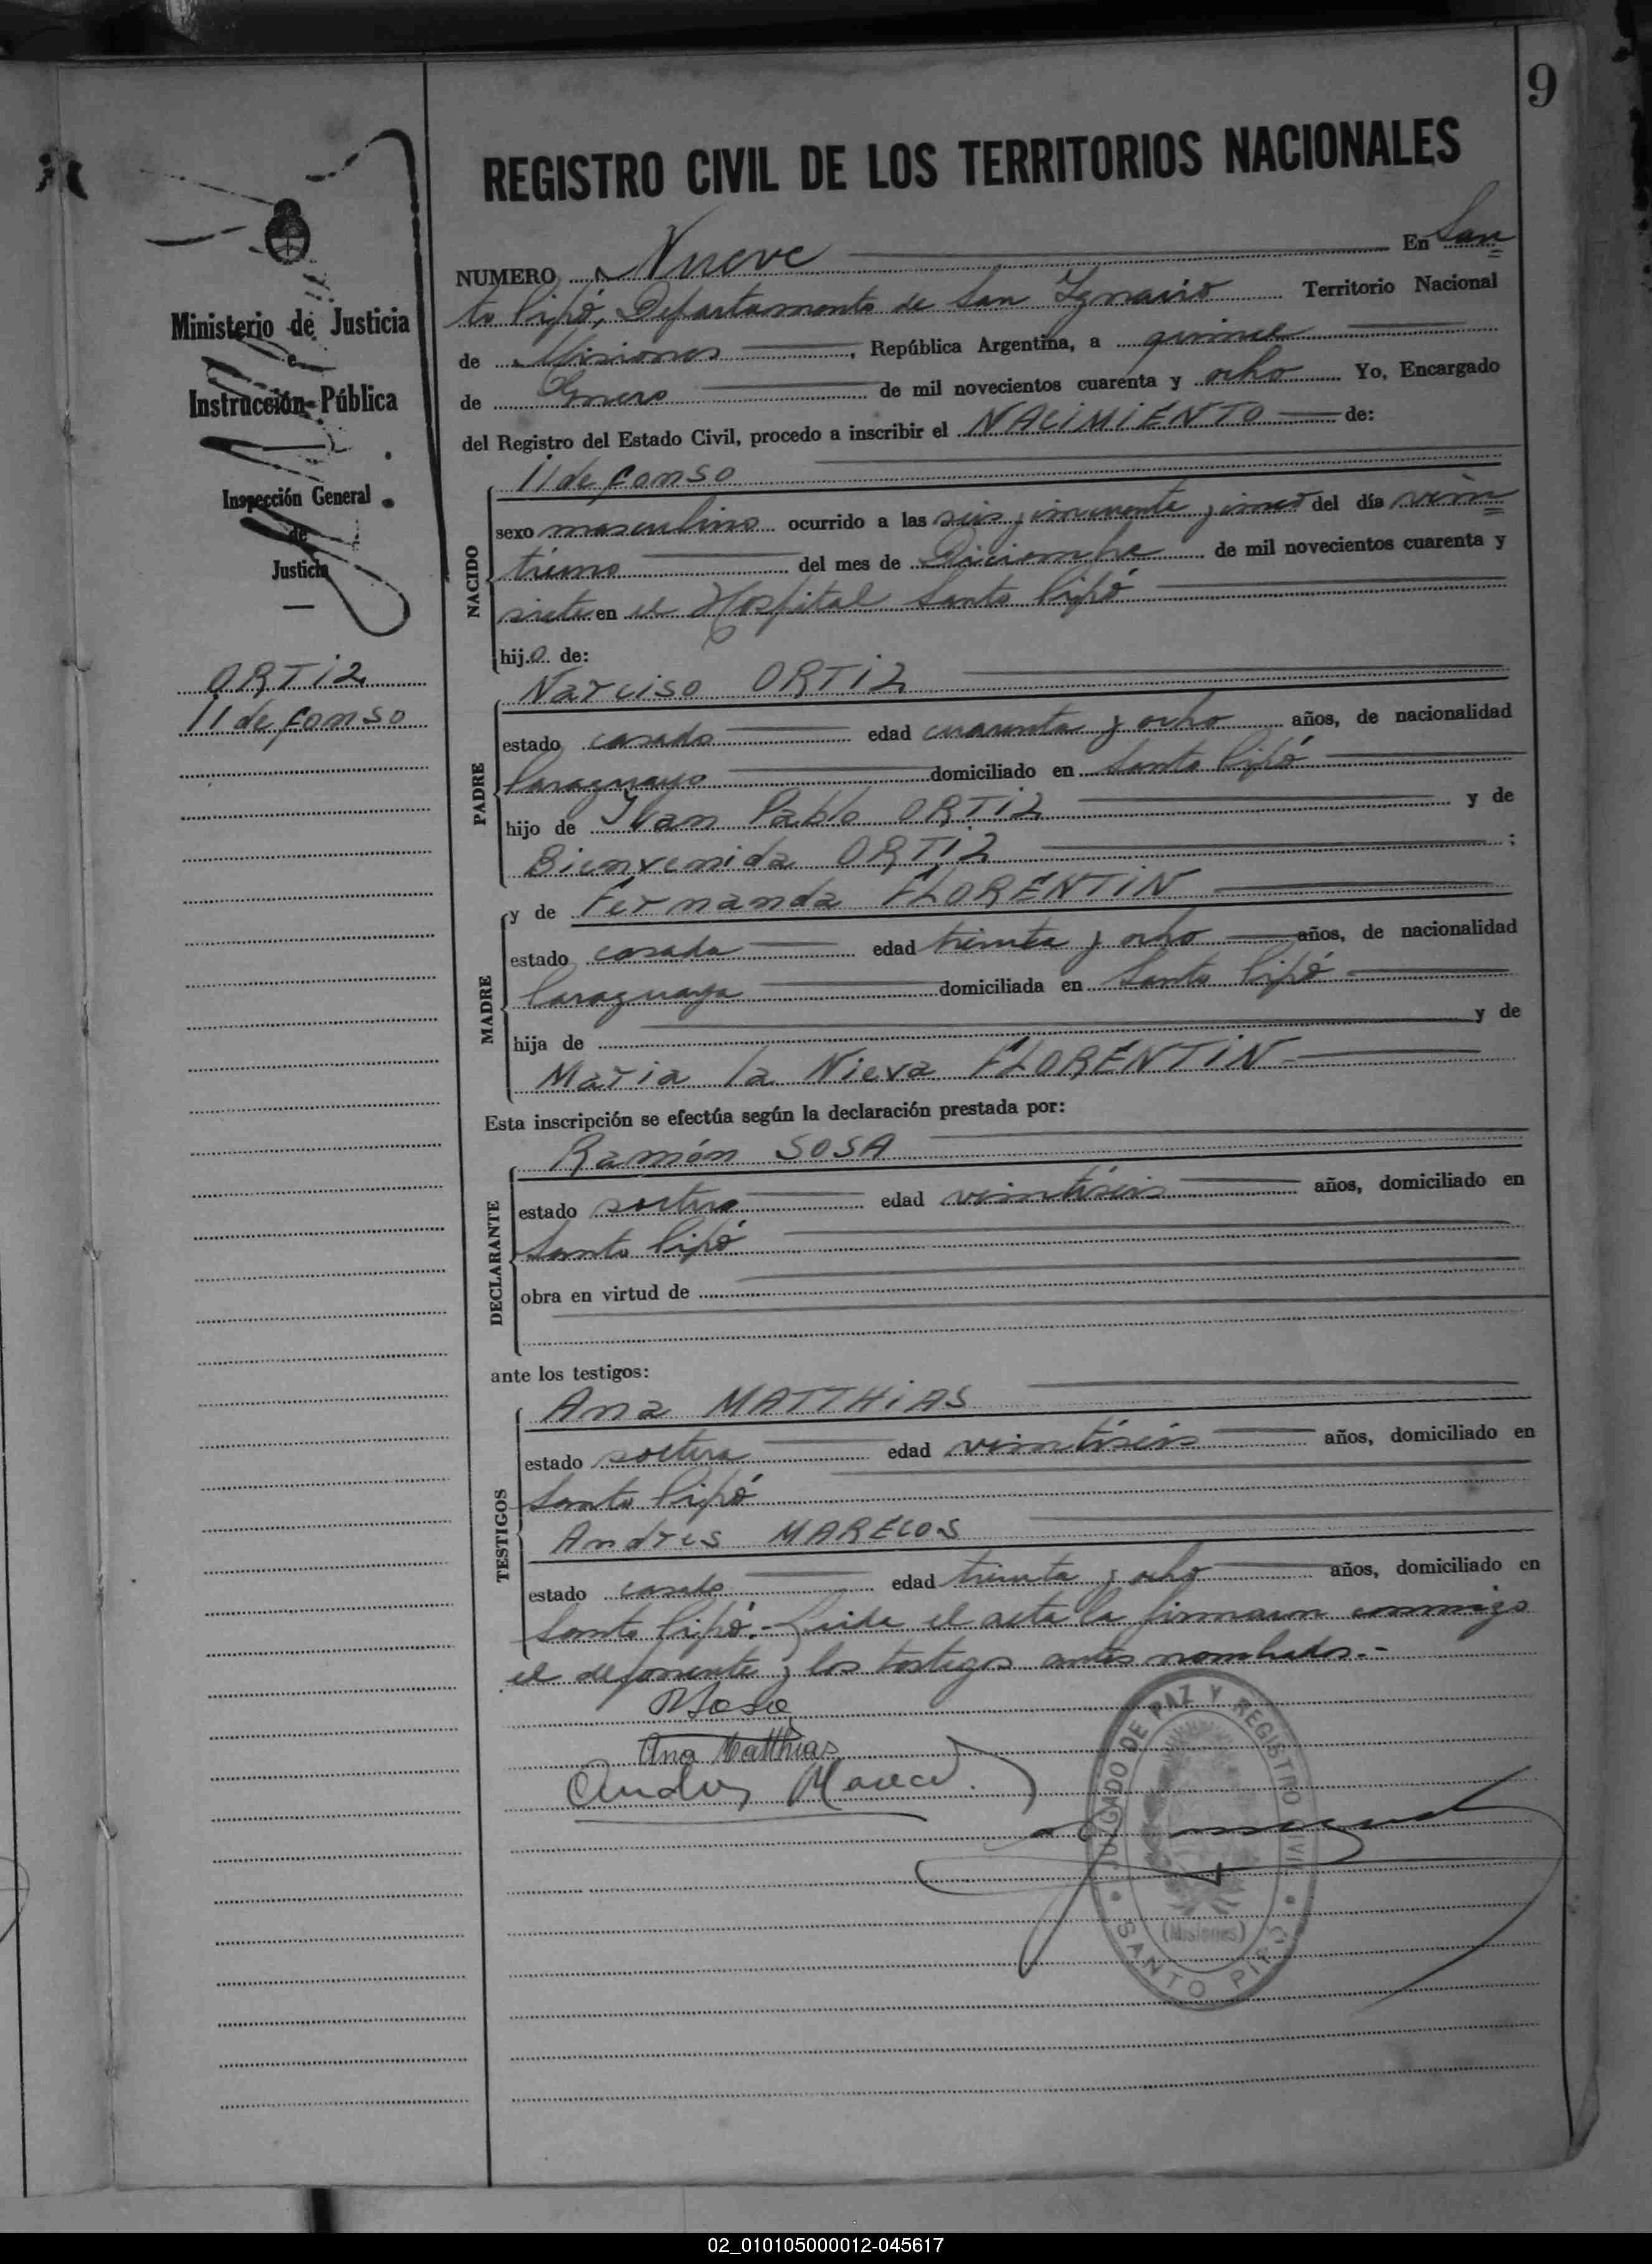 9
REGISTRO CIVIL DE LOS TERRITORIOS NACIONALES
Ministerio de Justicia
e
Instrucción Pública
Inspección General
de
Justicia
ORTIZ
Ildefonso
NUMERO Nueve En San
to Pipó, Departamento de San Ignacio Territorio Nacional
de Misiones, República Argentina, a quince
de Enero de mil novecientos cuarenta y ocho Yo, Encargado
del Registro del Estado Civil, procedo a inscribir el NACIMIENTO de:
NACIDO
Ildefonso
sexo masculino ocurrido a las seis y cincuenta y cinco del día vein
tiuno del mes de Diciembre de mil novecientos cuarenta y
siete en el Hospital Santo Pipó
hijo de:
PADRE
Narciso ORTIZ
estado casado edad cuarenta y ocho años, de nacionalidad
Paraguayo domiciliado en Santo Pipó
hijo de Juan Pablo ORTIZ y de
Bienvenida ORTIZ;
MADRE
y de Fernanda FLORENTIN
estado casada edad treinta y ocho años, de nacionalidad
Paraguaya domiciliada en Santo Pipó
hija de y de
Maria la Nieva FLORENTIN
Esta inscripción se efectúa según la declaración prestada por:
DECLARANTE
Ramón SOSA
estado soltero edad veintiseis años, domiciliado en
Santo Pipó
obra en virtud de
ante los testigos:
TESTIGOS
Ana MATTHIAS
estado soltera edad veintiseis años, domiciliado en
Santo Pipó
Andres MARECOS
estado casado edad treinta y ocho años, domiciliado en
Santo Pipó.- Leida el acta la firmaron conmigo
el deponente y los testigos antes nombrados.-
RSosa
Ana Matthias
Andres Marecos
JUZGADO DE PAZ Y REGISTRO CIVIL
(Misiones)
SANTO PIPÓ
02_010105000012-045617